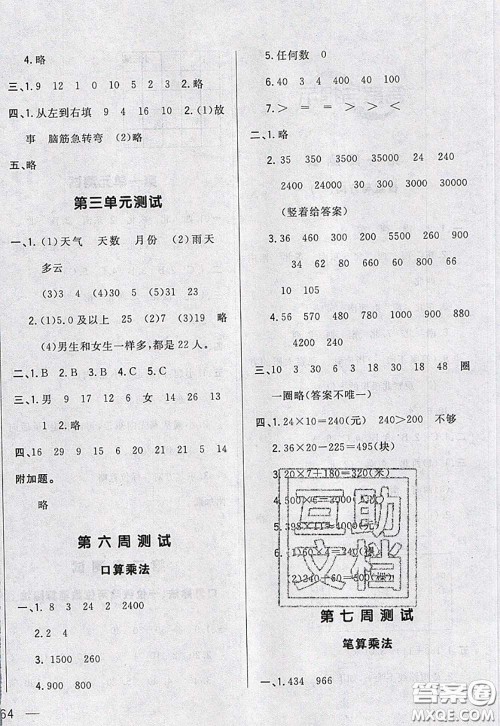 4.略
三、1.9 12 1 10 10 5 2.略
四、1.从左到右填 9 4 16 10 2.(1)故
事 脑筋急转弯 (2)略
五、略
第三单元测试
一、1.(1)天气 天数 月份 (2)雨天
多云
(3)3 4 (4)5 (5)31 23
2.(1)5.0及以上 25 (2)7 (3)略
(4)男生和女生一样多,都是22人。
二、1.B 2.B 3.B 4.B
三、1.男 9 17 12 6 女 14 26 13
1 2.略
四、16 29 18 15 14 21 21 5 14
附加题。
略
第六周测试
口算乘法
一、1.8 3 24 2 2400
2.2 4
3.1500 260
4.900 800
64
5.任何数 0
6.40 3 4 100 9
7.> = = > < >
二、1.略
2.30 35 350 35 340 34
2400 24000 2400 30 300
30000
(竖着给答案)
3.36 460 45 2700 2400 900
22 80 240 60 6400 8800
10 105
4.56 570 480 780 1000 690
880 320 990 4000
三、10 30 6 3 18 30 18 48 圈
一圈略(答案不唯一)
四、1.24×10=240(元) 240>200 不够
2.36×20-225=495(块)
3.20×7+180=320(米)
第七周测试
笔算乘法
一、1.434 966
互助
文档
答案圈
MXQE.COM